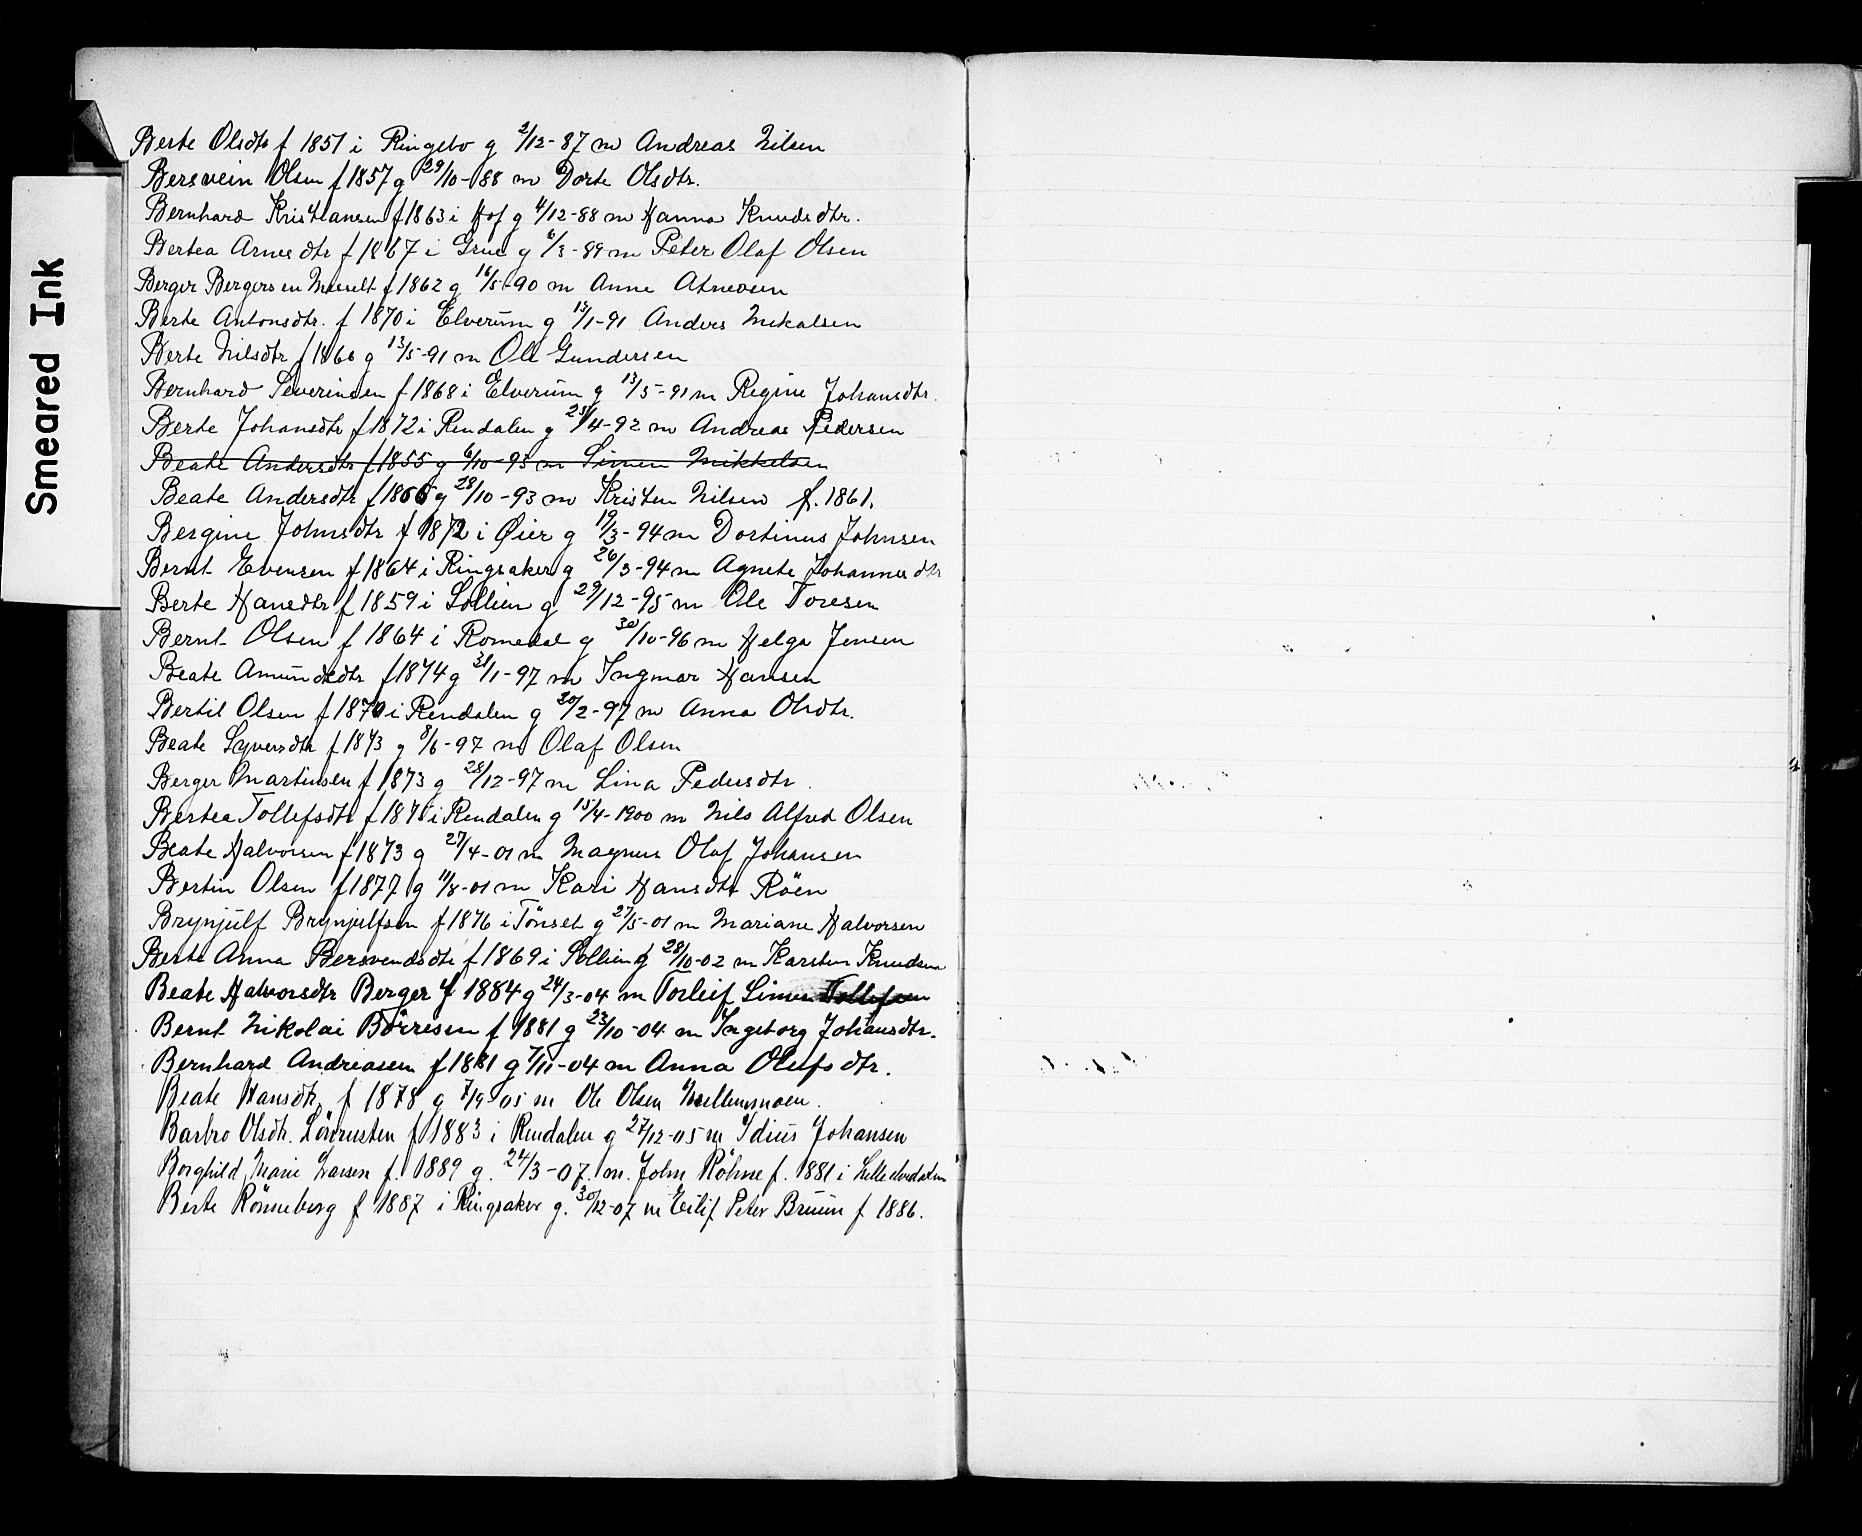 Smeared Ink
Berte Olsdtr f 1851 i Ringebo g 2/12-87 m Andreas Nilsen
Bersvein Olsen f 1857 g 29/10-88 m Dorte Olsdtr.
Bernhard Kristiansen f 1863 i Hof g 4/12-88 m Hanna Knudsdtr.
Bertea Arnesdtr f 1867 i Grue g 6/3-89 m Peter Olaf Olsen
Berger Bergersen f 1862 g 16/5-90 m Anne
Berte Antonsdtr. f 1870 i Elverum g 13/1-91 Anders Mikalsen
Berte Nilsdtr f 1860 g 13/5-91 m Ole Gundersen
Bernhard Severinsen f 1868 i Elverum g 13/5-91 m Regine Johansdtr.
Berte Johansdtr f 1872 i Rendalen g 25/4-92 m Andreas Pedersen
Beate Andersdtr f 1855 g 6/10-93 m Simen Mikkelsen
Beate Andersdtr f 1866 g 28/10-93 m Kristen Nilsen f. 1861.
Bergine Johnsdtr f 1872 i Øier g 19/3-94 m Dortinus Johnsen
Bernt Evensen f 1864 i Ringsaker g 26/3-94 m Agnete Johannesdtr
Berte Hansdtr f 1859 i Sollien g 29/12-95 m Ole Toresen
Bernt Olsen f 1864 i Romedal g 30/10-96 m Helga Jensen
Beate Amundsdtr f 1874 g 31/1-97 m Ingmar Hansen
Bertil Olsen f 1870 i Rendalen g 20/2-97 m Anna Olsdtr.
Beate Syversdtr f 1873 g 8/6-97 m Olaf Olsen
Berger Martinsen f 1873 g 28/12-97 m Lina Pedersdtr.
Bertea Tollefsdtr f 1875 i Rendalen g 15/4-1900 m Nils Alfred Olsen
Beate Halvorsen f 1873 g 27/4-01 m Magnus Olaf Johansen
Bertin Olsen f 1877 g 11/8-01 m Kari Hansdtr Röen
Brynjülf Brynjulfsen f 1876 i Tönset g 27/5-01 m Mariane Halvorsen
Berte Anna Bersvendsdtr f 1869 i Sollien g 28/10-02 m Karsten Knudsen
Beate Halvorsdtr Berger f 1884 g 24/3-04 m Torleif Simen Tollefsen
Bernt Nikolai Börresen f 1881 g 23/10-04 m Ingeborg Johansdtr.
Bernhard Andreasen f 1881 g 7/11-04 m Anna Olufsdtr.
Beate Hansdtr. f 1878 g 7/9 05 m Ole Olsen Mellemmoen.
Barbro Olsdtr. f 1883 i Rendalen g 27/12-05 m Idius Johansen
Borghild Marie Larsen f. 1889 g. 24/3-07. m. John Röhne f. 1881 i Lilleelvedalen
Berte Rönneberg f 1887 i Ringsaker g. 30/12-07 m Eilif Peter Bruun f 1886.